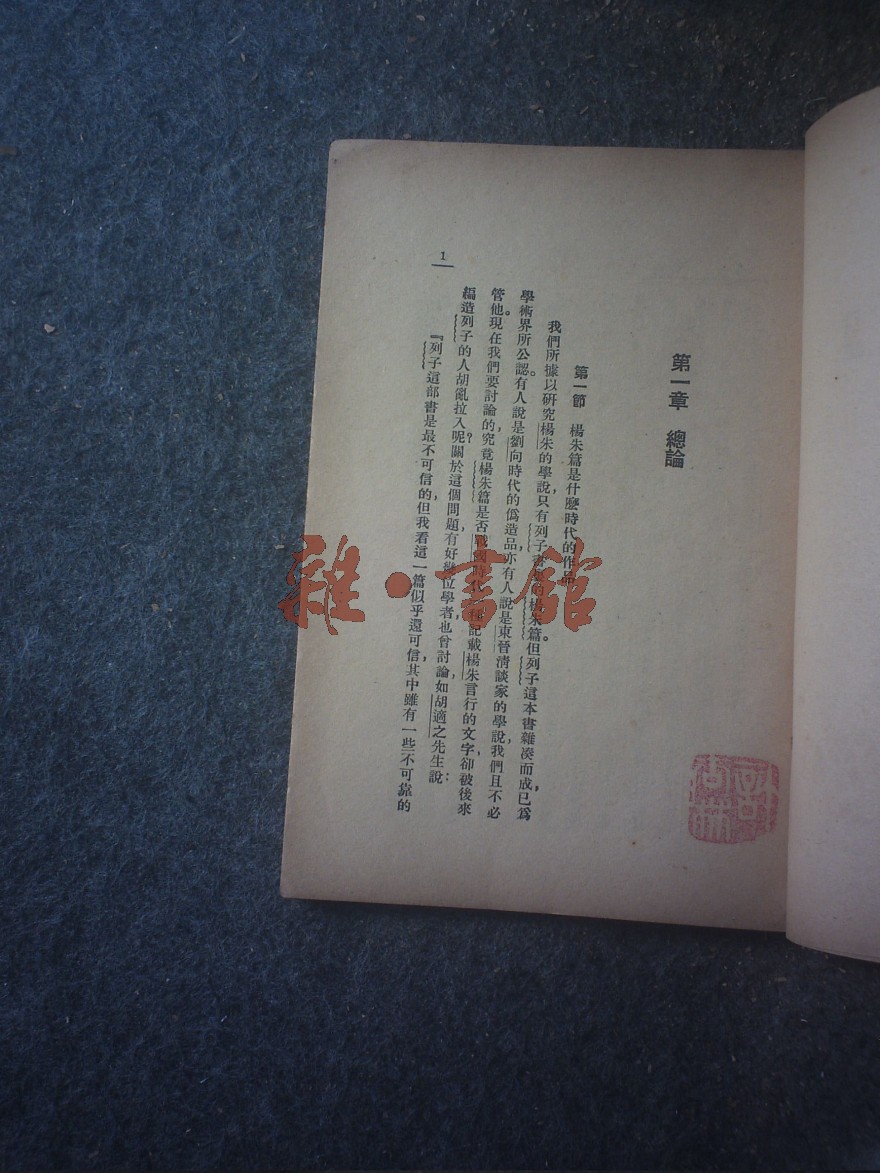 第一章　總論
第一節　楊朱篇是什麼時代的作品
我們所據以研究楊朱的學說，只有列子書裏的楊朱篇。但列子這本書雜凑而成，已為
學術界所公認。有人說是劉向時代的偽造品，亦有人說是東晉清談家的學說，我們且不必
管他。現在我們要討論的，究竟楊朱篇是否戰國時代一種記載楊朱言行的文字，卻被後來
編造列子的人胡亂拉入呢？關於這個問題，有好幾位學者也曾討論，如胡適之先生說：
『列子這部書是最不可信的，但我看這一篇似乎還可信，其中雖有一些不可靠的
1
雜·書館